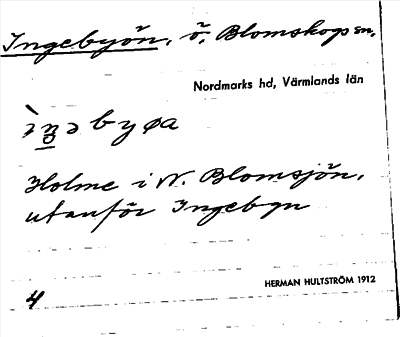 Ingebyön, ö, Blomskogs sn,
Nordmarks hd, Värmlands län
Holme i N. Blomsjön,
utanför Ingebyn
4
HERMAN HULTSTRÖM 1912